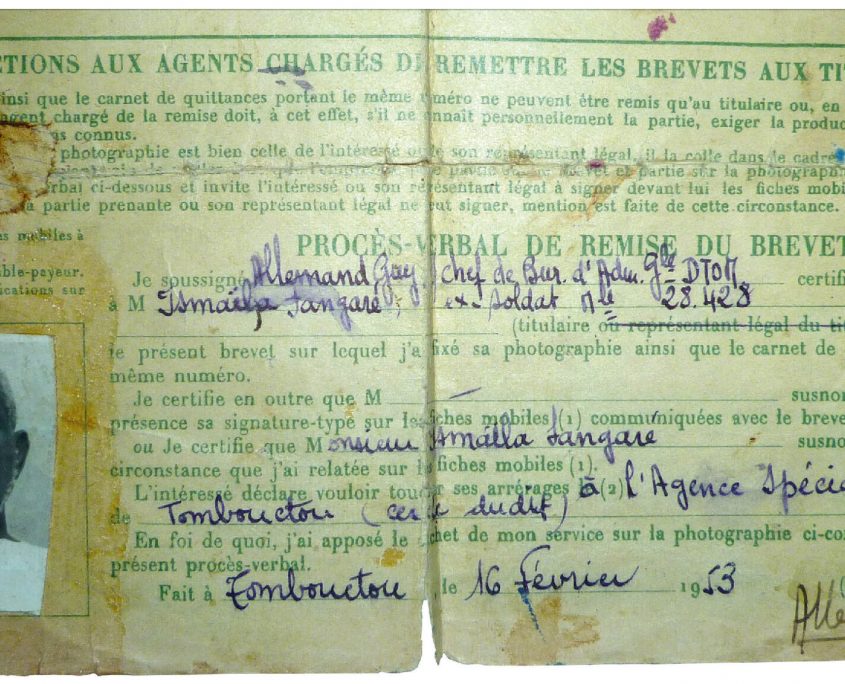 CTIONS AUX AGENTS CHARGÉS DE REMETTRE LES BREVETS AUX TI
insi que le carnet de quittances portant le même numéro ne peuvent être remis qu'au titulaire ou, en
agent chargé de la remise doit, à cet effet, s'il ne connaît personnellement la partie, exiger la produc
connus.
photographie est bien celle de l'intéressé ou de son représentant légal, il la colle dans le cadre
brevet et partie sur la photographi
erbal ci-dessous et invite l'intéressé ou son représentant légal à signer devant lui les fiches mobi
a partie prenante ou son représentant légal ne peut signer, mention est faite de cette circonstance.
s mobiles à
ble-payeur.
ications sur
PROCÈS-VERBAL DE REMISE DU BREVET
Je soussigné Allemand Guy, chef de Bur. d'Adm. Gle DTOM certifi
à M Ismaïla Sangaré, ex-Soldat Mle 28.428
(titulaire ou représentant légal du ti
le présent brevet sur lequel j'ai fixé sa photographie ainsi que le carnet de
même numéro.
Je certifie en outre que M susnor
présence sa signature-type sur les fiches mobiles (1) communiquées avec le breve
ou Je certifie que Monsieur Ismaïla Sangaré susno
circonstance que j'ai relatée sur les fiches mobiles (1).
L'intéressé déclare vouloir toucher ses arrérages à (2) l'Agence Spécia
de Tombouctou (cercle dudit)
En foi de quoi, j'ai apposé le cachet de mon service sur la photographie ci-con
présent procès-verbal.
Fait à Tombouctou le 16 Février 1953
Alle